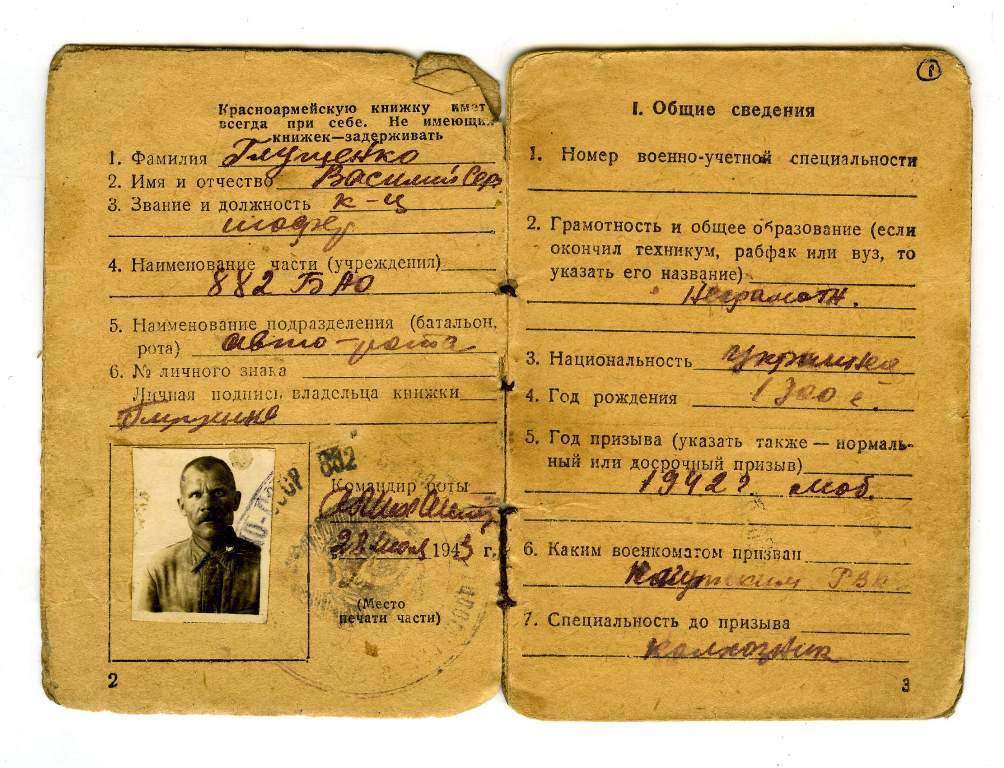 Красноармейскую книжку иметь
всегда при себе. Не имеющих
книжек—задерживать
1. Фамилия Глущенко
2. Имя и отчество Василий Сер
3. Звание и должность к-ц
шофер
4. Наименование части (учреждения)
882 БАО
5. Наименование подразделения (батальон,
рота) авто-рота
6. № личного знака
Личная подпись владельца книжки
882
СССР
Командир роты
28 июля 1943 г.
(Место
печати части)
2
1
I. Общие сведения
1. Номер военно-учетной специальности
2. Грамотность и общее образование (если
окончил техникум, рабфак или вуз, то
указать его название)
Неграмотн.
3. Национальность украинец
4. Год рождения 1900 г.
5. Год призыва (указать также — нормаль-
ный или досрочный призыв)
1942 г. моб.
6. Каким военкоматом призван
РВК.
7. Специальность до призыва
колхозник
3